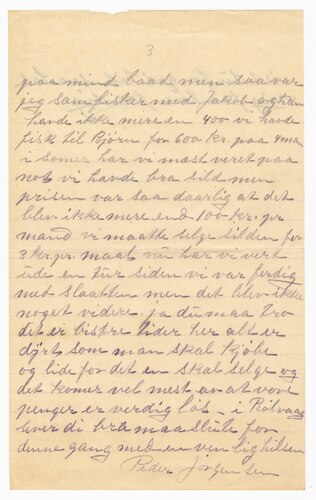 3
paa mind baad men saa var
jeg samfisker med Jakob og han
havde ikke mere en 400 vi havde
fisk til Bjørn for 600 kr. paa 4 man
i somer har vi mast veret paa
not vi havde bra sild men
prisen var saa daarlig at det
blev ikke mere end 100 kr. pr
mand vi maatte selge silden for
3 kr. pr maal nu har vi vert
ude en tur siden vi var ferdig
met slaatten men det blev ikke
noget videre. ja du maa tro
det er bistre tider her alt er
dyrt som man skal kjøbe
og lide for det en skal selge og
det komer vel mest av at vore
penger er verdig løs - i Rølvaag
lever di bra maa slute for
denne gang med en venlig hilsen
Peder Jørgensen